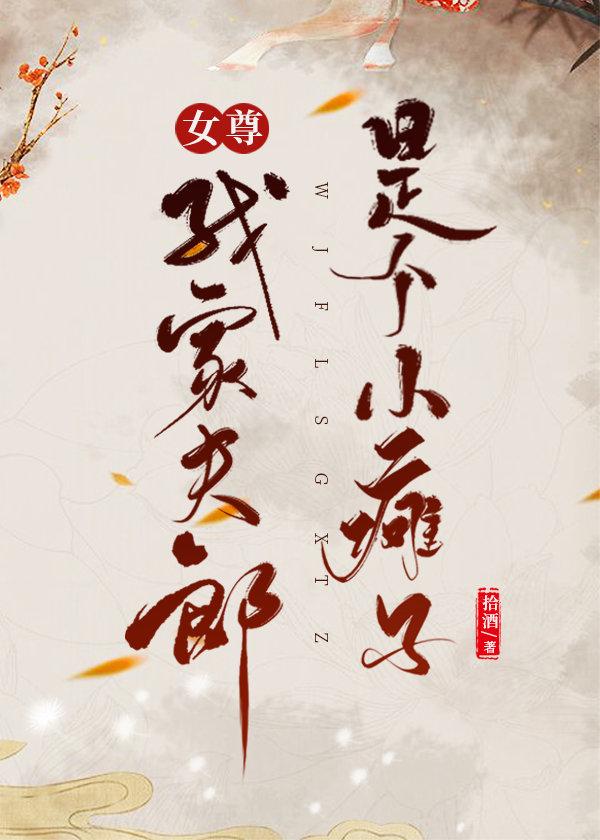 女尊
我家夫郎
WJFLSGXTZ
是个小瘫子
拾酒/著